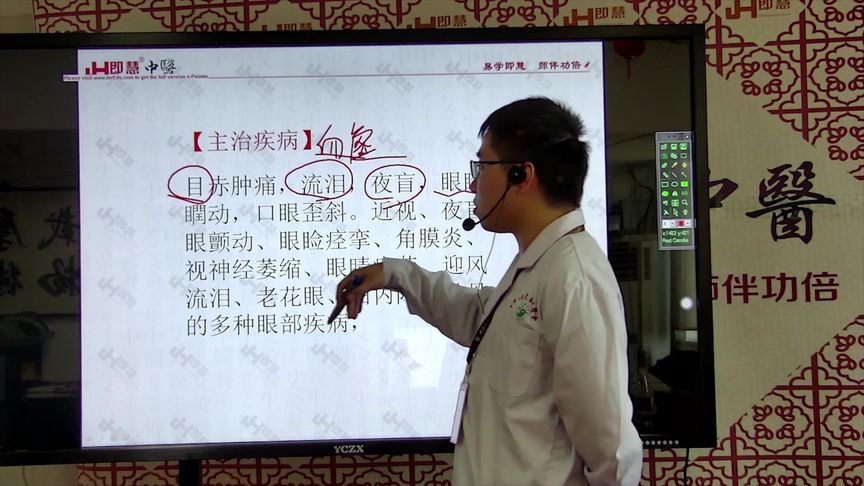 即慧 中醫
Please visit www.InfEdu.com to get the full version e-Pointer
易学即慧 师伴功倍
【主治疾病】
目赤肿痛，流泪，夜盲，眼
瞤动，口眼歪斜。近视、夜盲
眼颤动、眼睑痉挛、角膜炎、
视神经萎缩、眼睛 迎风
流泪、老花眼、
的多种眼部疾病，
x:1403 y:421
Red Candle
YCZX
即慧
中醫
师伴功倍